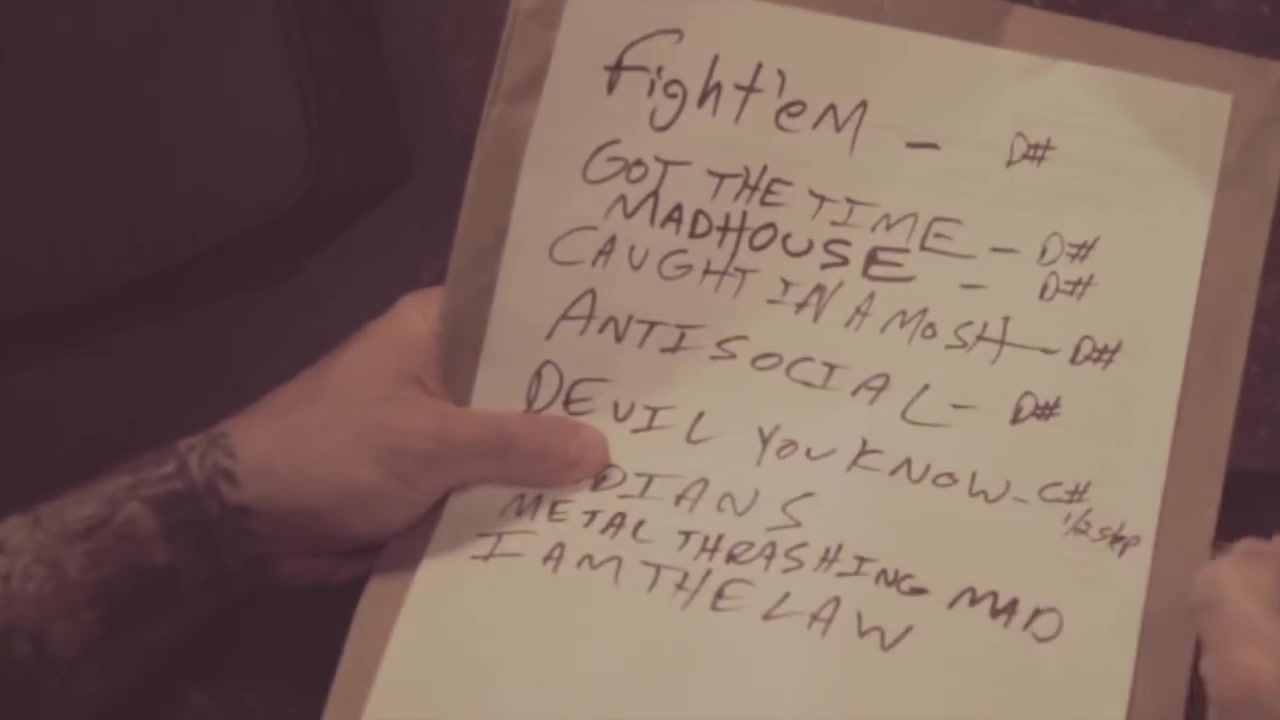 Fight'em - D#
GOT THE TIME - D#
MADHOUSE - D#
CAUGHT IN A MOSH - D#
ANTISOCIAL - D#
DEVIL YOU KNOW - C#
1/2 step
DIANS
METAL THRASHING MAD
I AM THE LAW